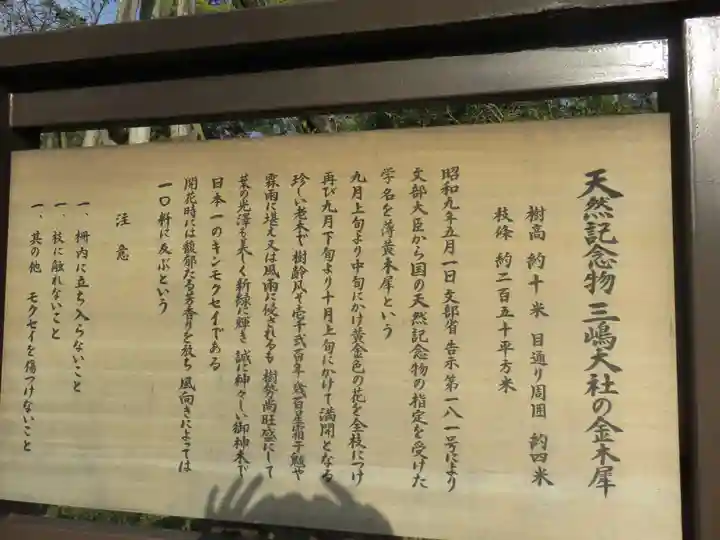 天然記念物 三嶋大社の金木犀
樹高 約十米 目通り周囲 約四米
枝條 約二百五十平方米
昭和九年五月一日文部省告示第一八一号により
文部大臣から国の天然記念物の指定を受けた
学名を薄黄木犀という
九月上旬より中旬にかけ黄金色の花を全枝につけ
再び九月下旬より十月上旬にかけて満開となる
珍しい老木で 樹齢凡そ壱千弐百年 幾百星霜
霖雨に堪え又は風雨に侵されるも 樹勢尚旺盛にして
葉の光澤も美しく新緑に輝き 誠に神々しい御神木で
日本一のキンモクセイである
開花時には馥郁たる芳香りを放ち 風向きによっては
一〇粁に及ぶという
注意
一、柵内に立ち入らないこと
一、枝に触れないこと
一、其の他 モクセイを傷つけないこと